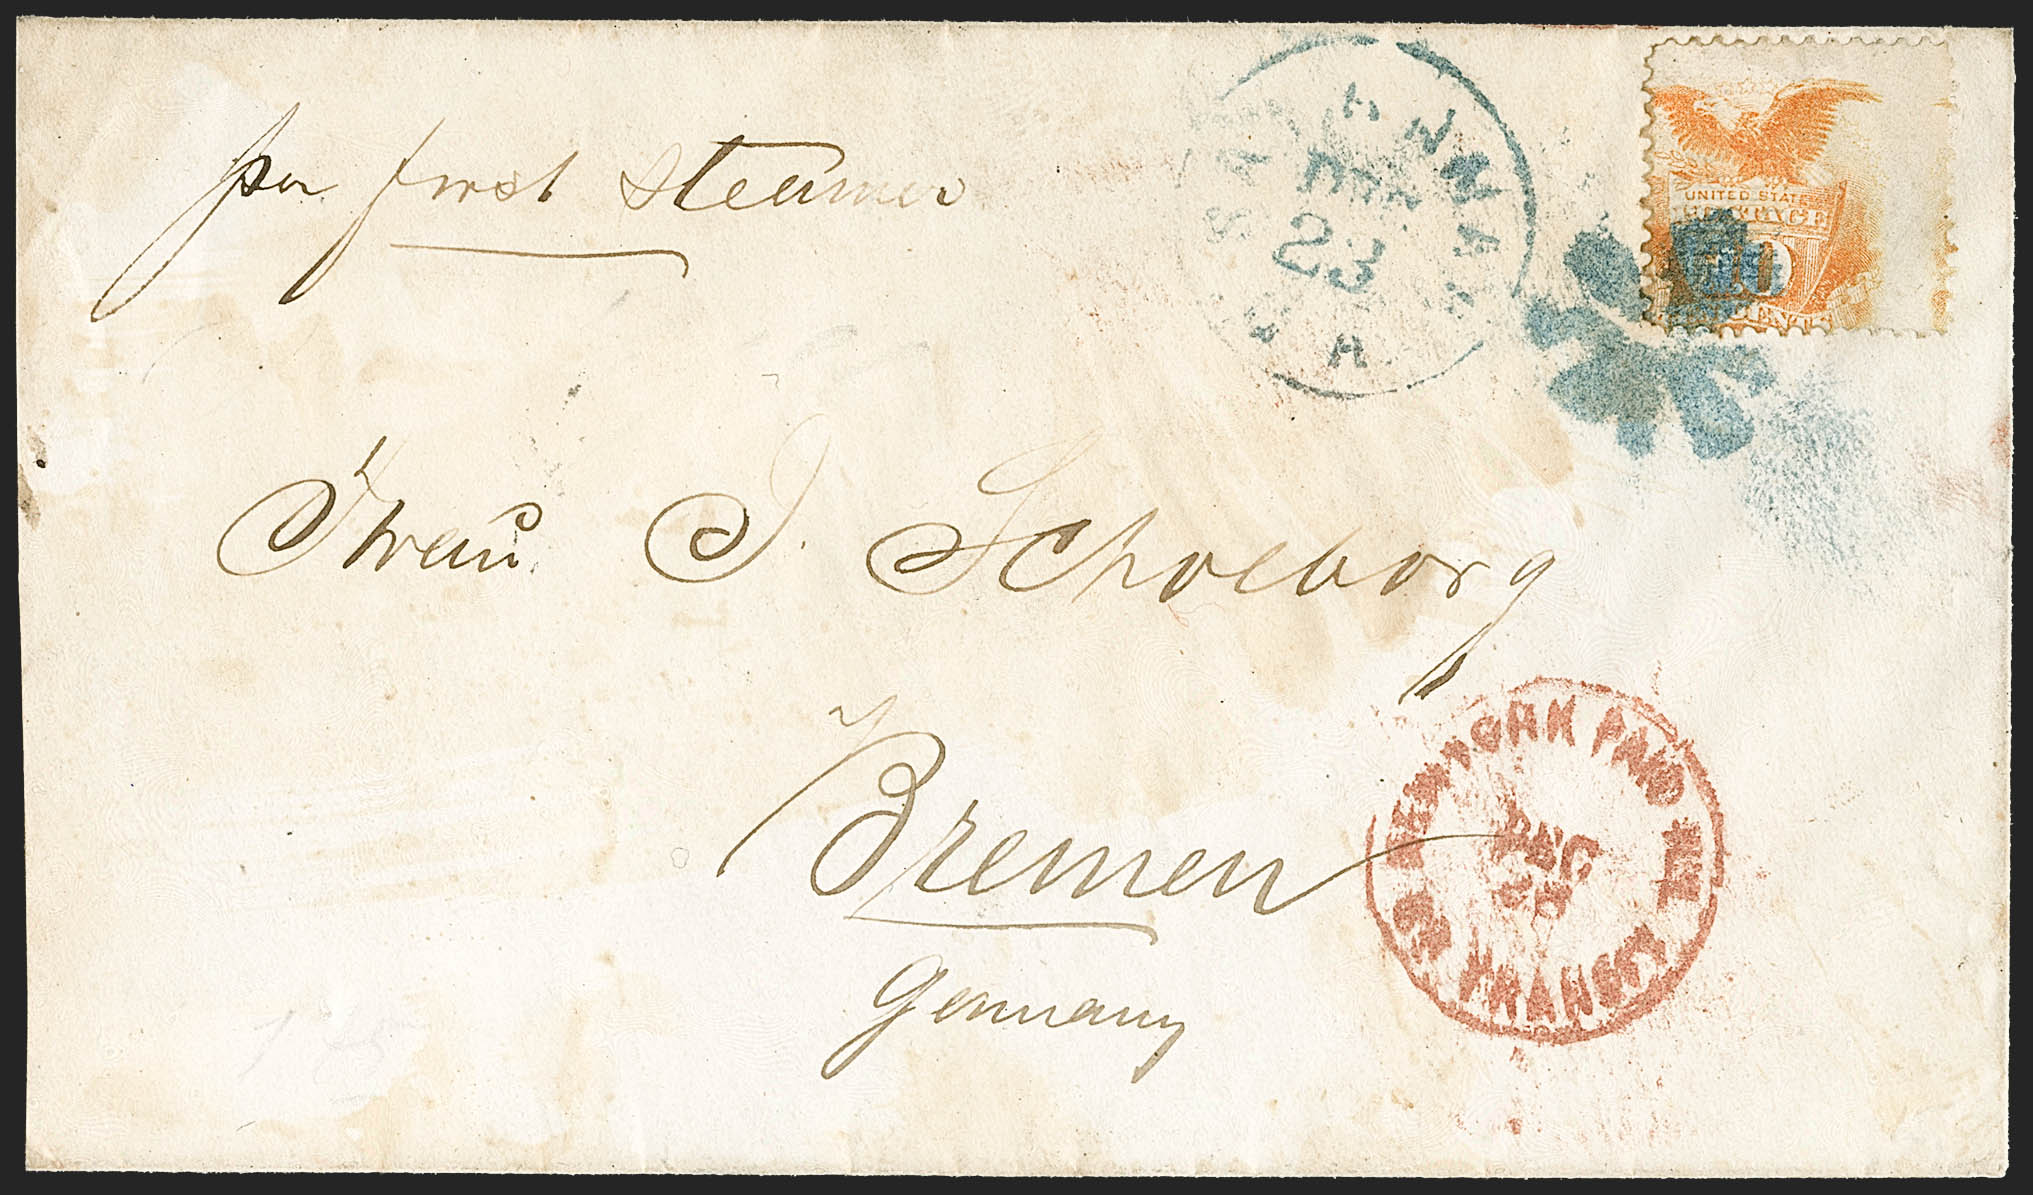 per first steamer
SAVANNAH
DEC
23
UNITED STATE
POSTAGE
10
CENTS
Frau J. Schoeborg
Bremen
Germany
NEW YORK PAID ALL
BR. TRANSIT
DEC